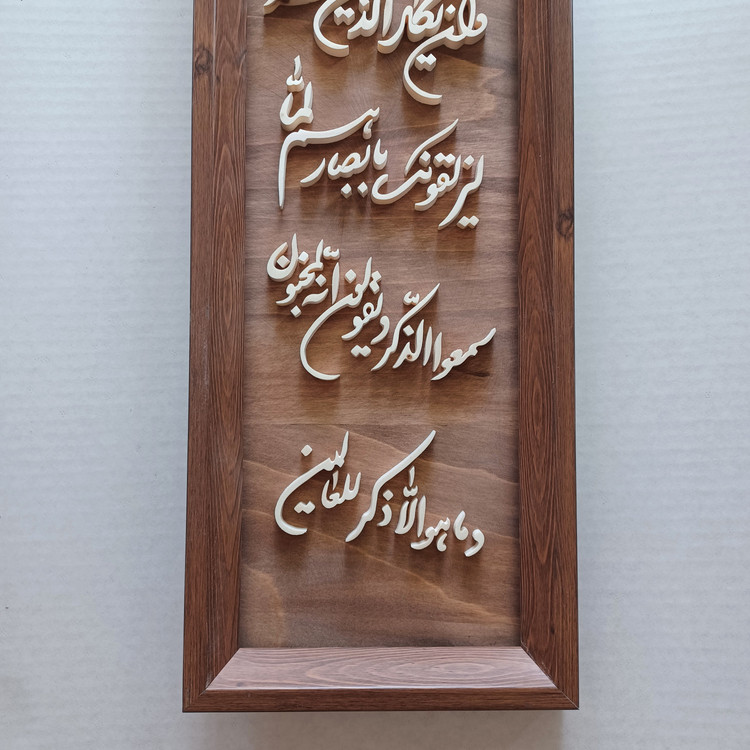 وان یکاد الذین
لیزلقونک بابصارهم لمّا
سمعوا الذّکر و یقولون انّه لمجنون
و ما هو الّا ذکر للعالمین